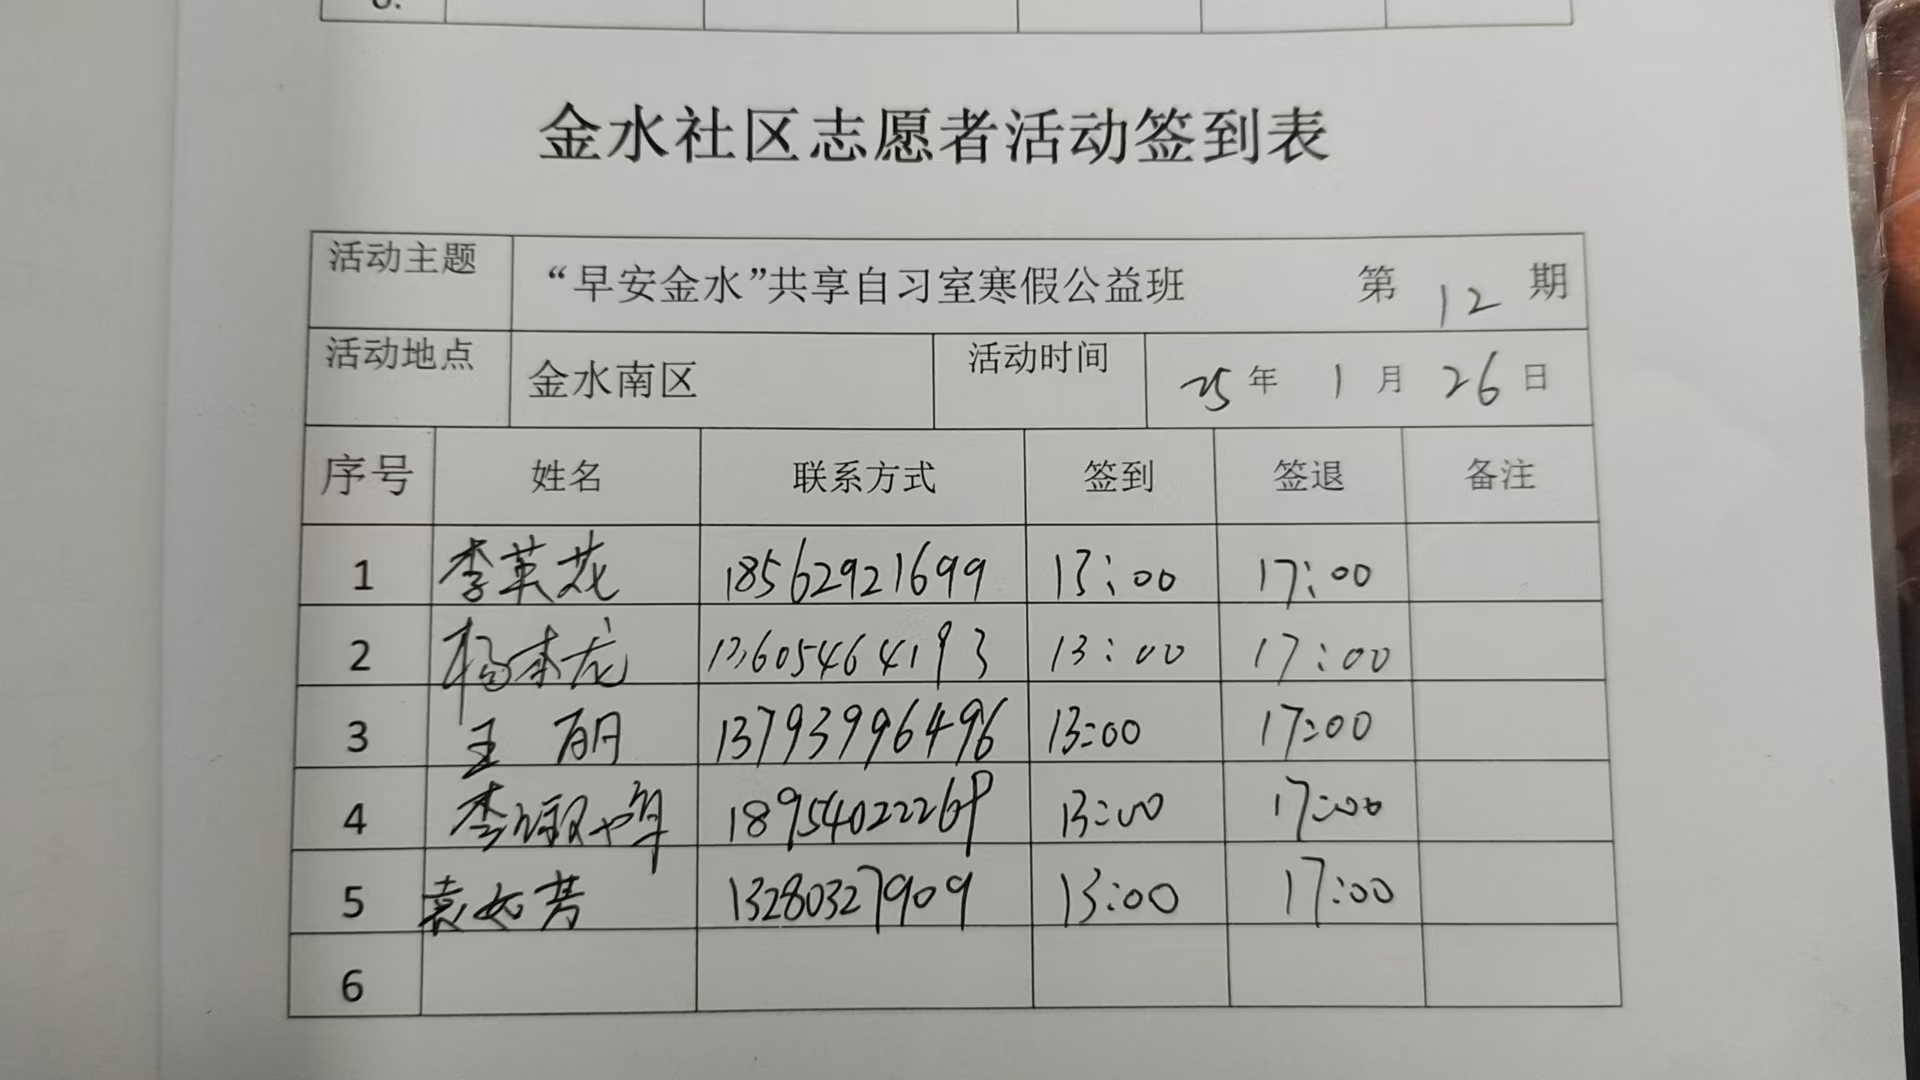 金水社区志愿者活动签到表
活动主题 “早安金水”共享自习室寒假公益班 第 12 期
活动地点 金水南区 活动时间 25 年 1 月 26 日
序号 姓名 联系方式 签到 签退 备注
1 李英花 18562921699 13:00 17:00
2 杨本龙 13605464193 13:00 17:00
3 王丽 13793996496 13:00 17:00
4 李 18954022268 13:00 17:00
5 袁如芳 13280327909 13:00 17:00
6